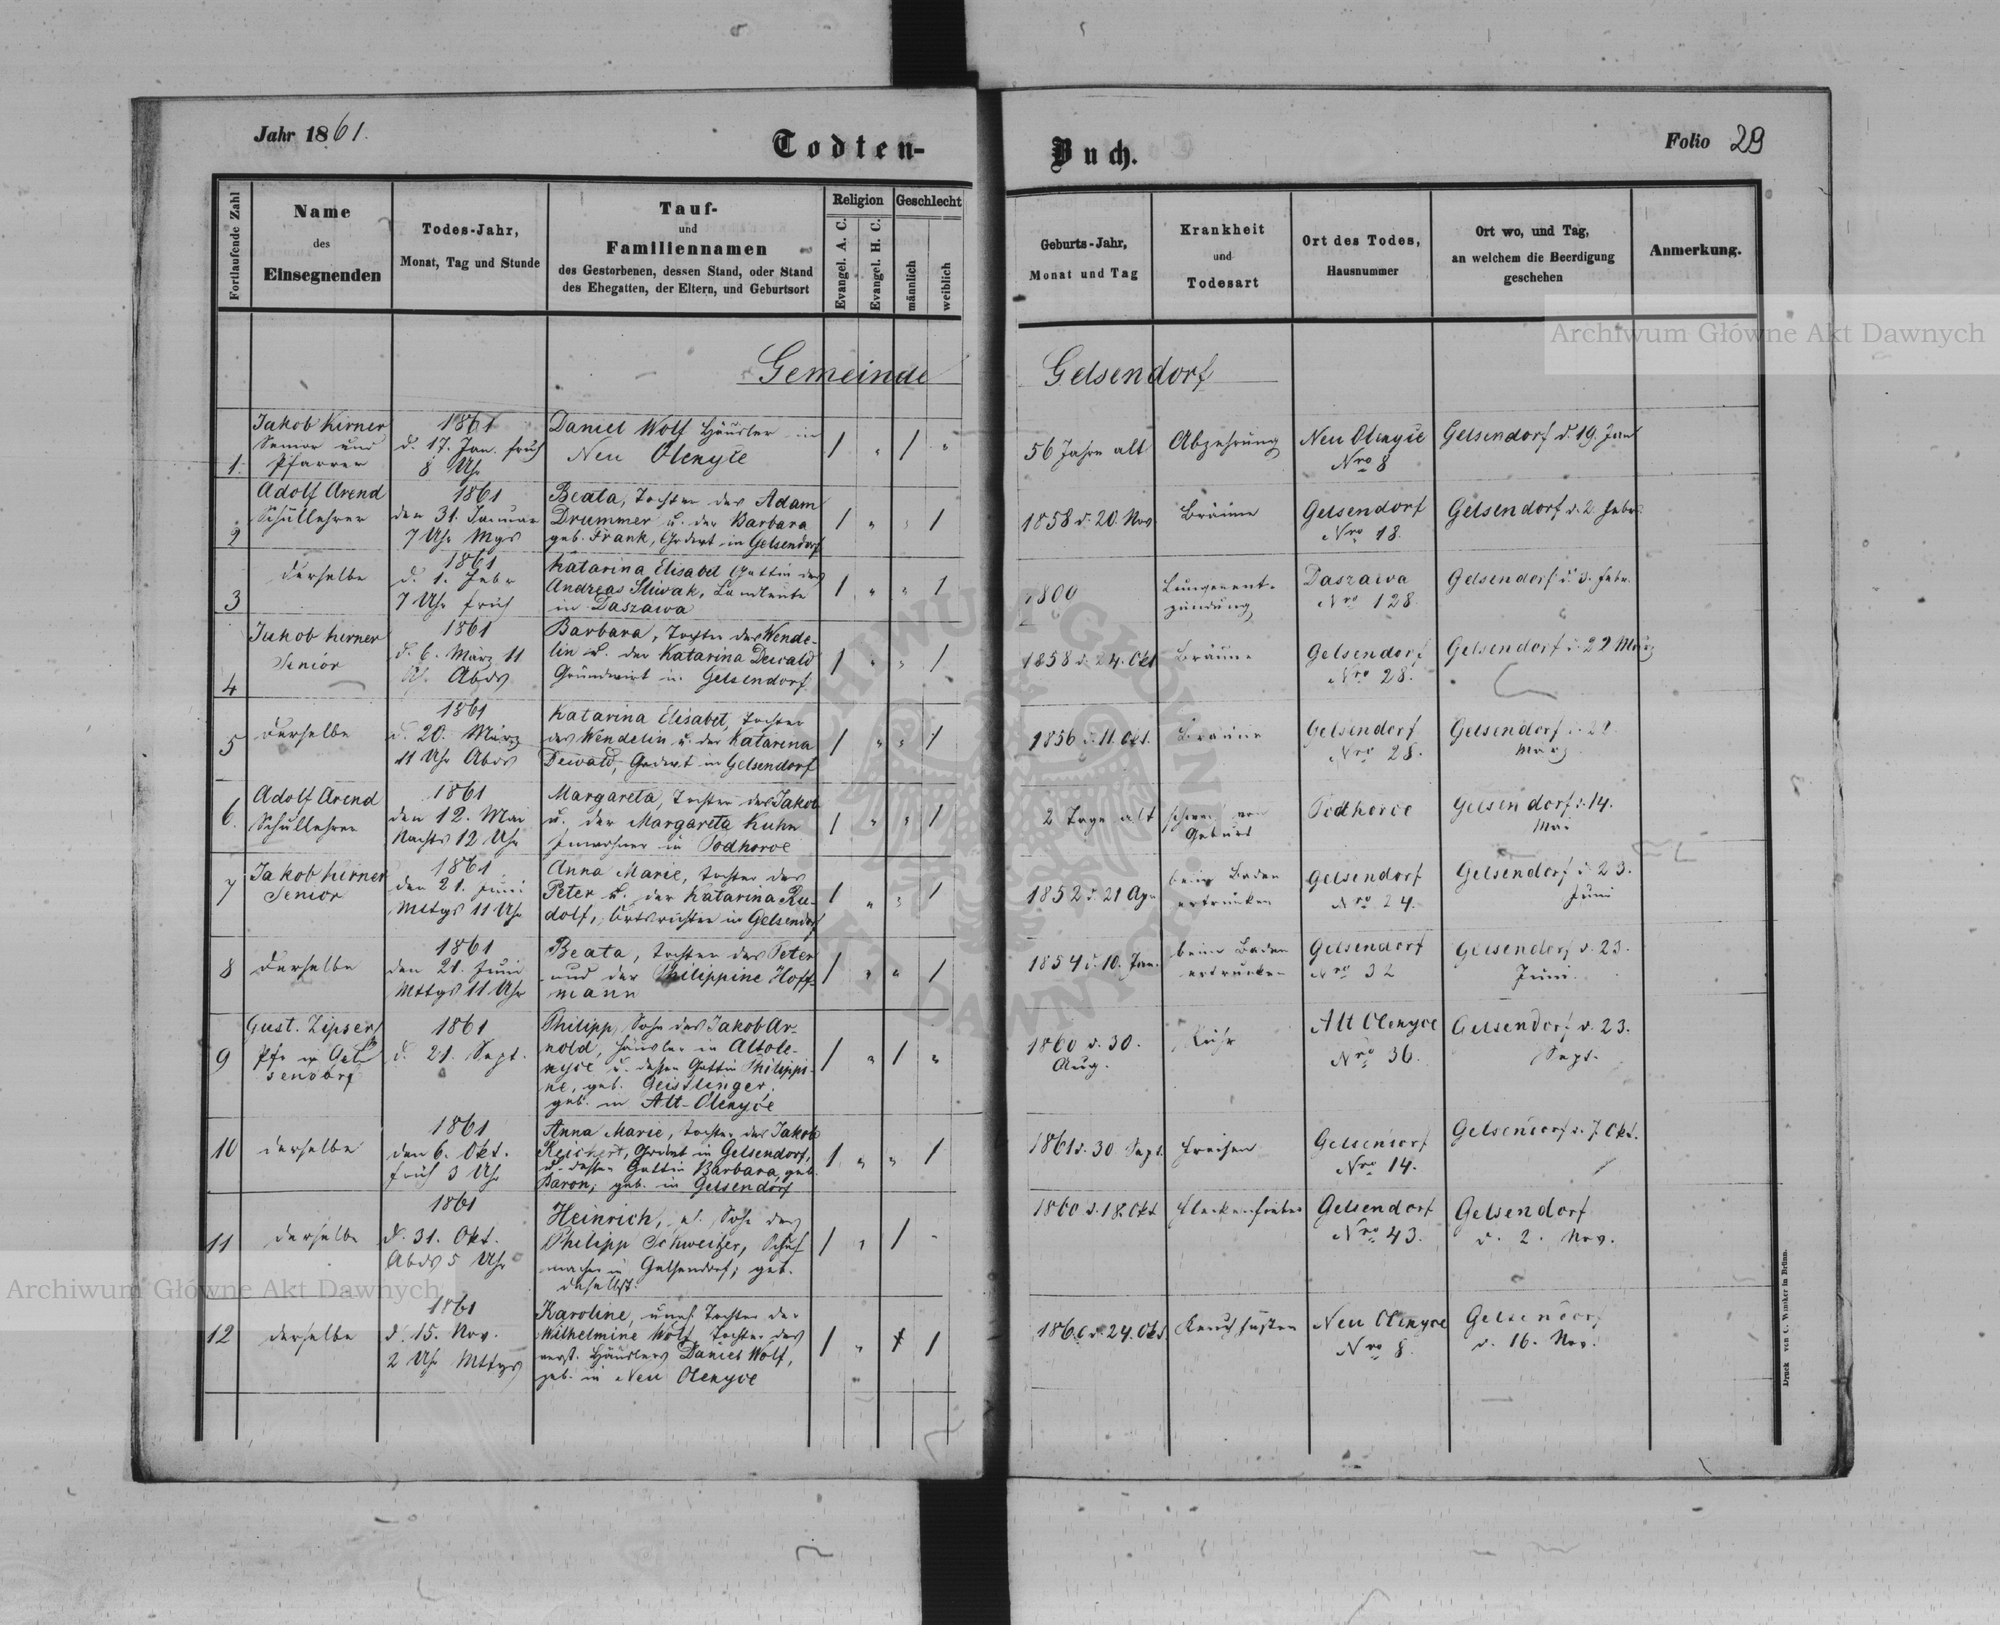 Jahr 1861.
Todten-
Buch.
Folio 29
Fortlaufende Zahl
Name
des
Einsegnenden
Todes-Jahr,
Monat, Tag und Stunde
Tauf-
und
Familiennamen
des Gestorbenen, dessen Stand, oder Stand
des Ehegatten, der Eltern, und Geburtsort
Religion
Evangel. A. C.
Evangel. H. C.
Geschlecht
männlich
weiblich
Geburts-Jahr,
Monat und Tag
Krankheit
und
Todesart
Ort des Todes,
Hausnummer
Ort wo, und Tag,
an welchem die Beerdigung
geschehen
Anmerkung.
Gemeinde
Gelsendorf
1.
Jakob Kirner
Senior und
Pfarrer
1861
d. 17. Jan. früh
8 Uhr
Daniel Wolf Häusler in
Neu Olexyce
/ " / "
56 Jahre alt
Abzehrung
Neu Olexyce
Nro 8
Gelsendorf d. 19. Jan
2
Adolf Arend
Schullehrer
1861
den 31. Januar
7 Uhr Mgs
Beata, Tochter des Adam
Drummer u. der Barbara
geb. Frank, Grdwt in Gelsendorf
/ " " /
1858 d. 20. Nov
Bräune
Gelsendorf
Nro 18.
Gelsendorf d. 2. Febr.
3
derselbe
1861
d. 1. Febr
7 Uhr früh
Katarina Elisabet Gattin des
Andreas Sliwak, Landleute
in Daszawa
/ " " /
1800
Lungenent-
zündung
Daszawa
Nro 128.
Gelsendorf d. 3. Febr.
4
Jakob Kirner
Senior
1861
d. 6. März 11
U. Abds
Barbara, Tochter des Wende-
lin u. der Katarina Dewald
Grundwirt in Gelsendorf
/ " " /
1858 d. 24. Okt
Bräune
Gelsendorf
Nro 28.
Gelsendorf d. 22 März
5
derselbe
1861
d. 20. März
11 Uhr Abds
Katarina Elisabet, Tochter
des Wendelin u. der Katarina
Dewald, Grdwt in Gelsendorf
/ " " /
1856 d. 11. Okt.
Bräune
Gelsendorf
Nro 28.
Gelsendorf d. 22
März
6.
Adolf Arend
Schullehrer
1861
den 12. Mai
Nachts 12 Uhr
Margareta, Tochter des Jakob
u. der Margareta Kuhn
Inwohner in Podhorce
/ " " /
2 Tage alt
schwach von
Geburt
Podhorce
Gelsendorf d. 14.
Mai
7
Jakob Kirner
Senior
1861
den 21. Juni
Mttgs 11 Uhr
Anna Marie, Tochter des
Peter u. der Katarina Ru-
dolf, Ortsrichter in Gelsendorf
/ " " /
1852 d. 21 Apr
beim Baden
ertrunken
Gelsendorf
Nro 24.
Gelsendorf d. 23.
Juni
8
derselbe
1861
den 21. Juni
Mttgs 11 Uhr
Beata, Tochter des Peter
und der Philippine Hoff-
mann
/ " " /
1854 d. 10. Jan.
beim Baden
ertrunken
Gelsendorf
Nro 32
Gelsendorf d. 23.
Juni
9
Gust. Zipser
Pfr in Gel-
1861
d. 21. Sept.
Philipp, Sohn des Jakob Ar-
nold, Häusler in Altole-
xyce u. dessen Gattin Philippi-
ne, geb. Geistlinger.
geb. in Alt-Olexyce
/ " / "
1860 d. 30.
Aug.
Ruhr
Alt Olexyce
Nro 36.
Gelsendorf d. 23.
Sept.
10
derselbe
1861
den 6. Okt.
früh 3 Uhr
Anna Marie, Tochter des Jakob
Reichert, Grdwt in Gelsendorf,
u. dessen Gattin Barbara, geb.
Baron; geb. in Gelsendorf
/ " " /
1861 d. 30 Sept.
Freisen
Gelsendorf
Nro 14.
Gelsendorf d. 7. Okt.
11
derselbe
1861
d. 31. Okt.
Abds 5 Uhr
Heinrich, el. Sohn des
Philipp Schweitzer, Schuh-
macher in Gelsendorf; geb.
daselbst.
/ " / "
1860 d. 18. Okt
Fleckenfieber
Gelsendorf
Nro 43.
Gelsendorf
d. 2. Nov.
12
derselbe
1861
d. 15. Nov.
2 Uhr Mttgs
Karoline, unehl. Tochter der
Wilhelmine Wolf, Tochter des
verst. Häuslers Daniel Wolf,
geb. in Neu Olexyce
/ " /
1860 d. 24. Okt.
Keuchhusten
Neu Olexyce
Nro 8.
Gelsendorf
d. 16. Nov.
Druck von C. Winiker in Brünn.
Archiwum Główne Akt Dawnych
Archiwum Główne Akt Dawnych
ARCHIWUM GŁÓWNE AKT DAWNYCH